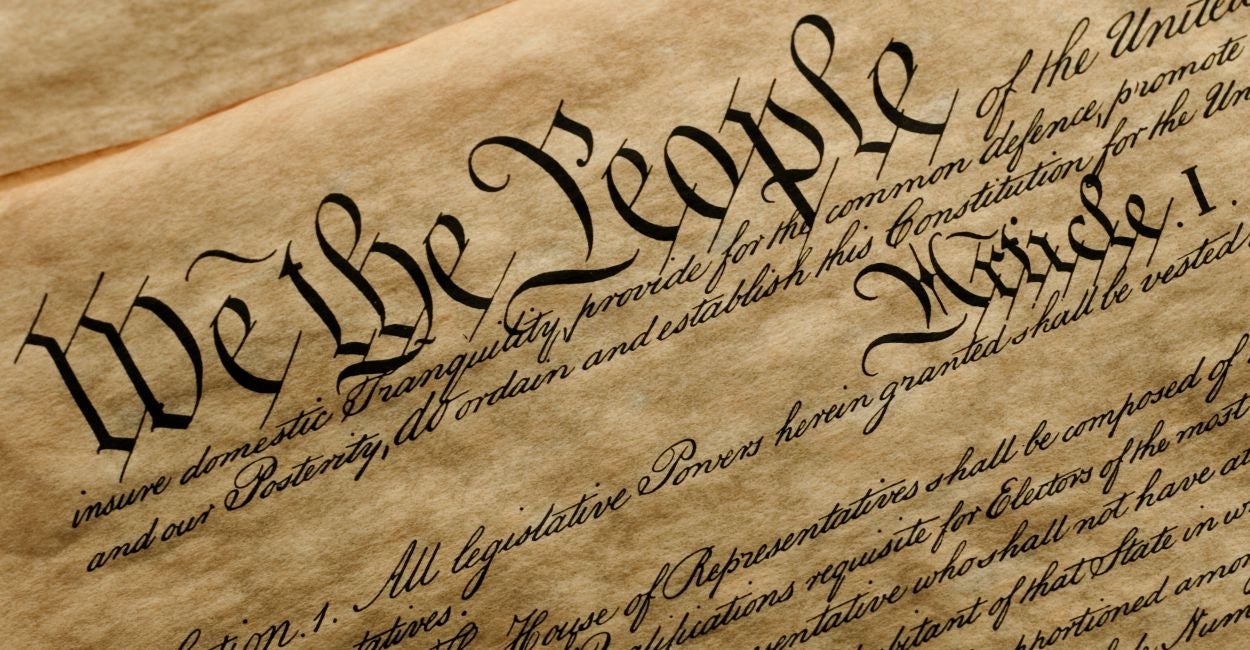 We the People of the United
insure domestic Tranquility, provide for the common defence, promote
and our Posterity, do ordain and establish this Constitution for the Un
Article. I.
ction. 1. All legislative Powers herein granted shall be vested
tatives.
House of Representatives shall be composed of
alifications requisite for Electors of the most
sentative who shall not have at
bitant of that State in w
pportioned amon
Num